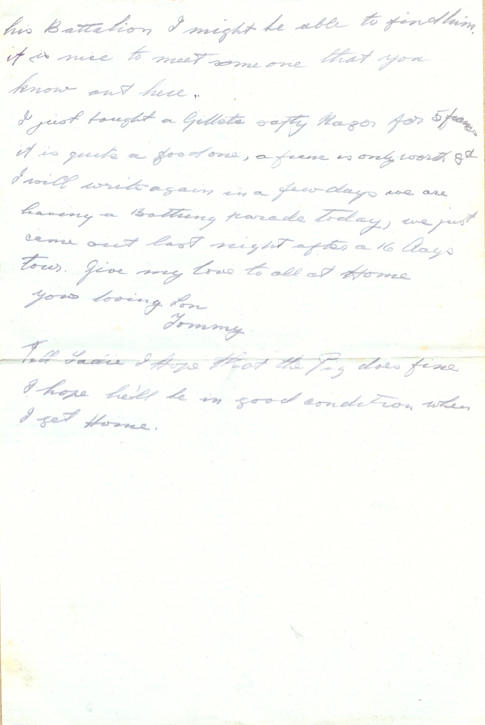 his Battalion I might be able to find him,
it is nice to meet some one that you
know out here.
I just bought a Gillete safty Razor for 5 francs
it is quite a good one, a franc is only worth 8d
I will write again in a few days we are
having a Bathing parade today, we just
came out last night after a 16 days
tour. Give my love to all at Home
your loving Son
Tommy.
Tell I Hope that the Pig does fine
I hope he'll be in good condition when
I get Home.